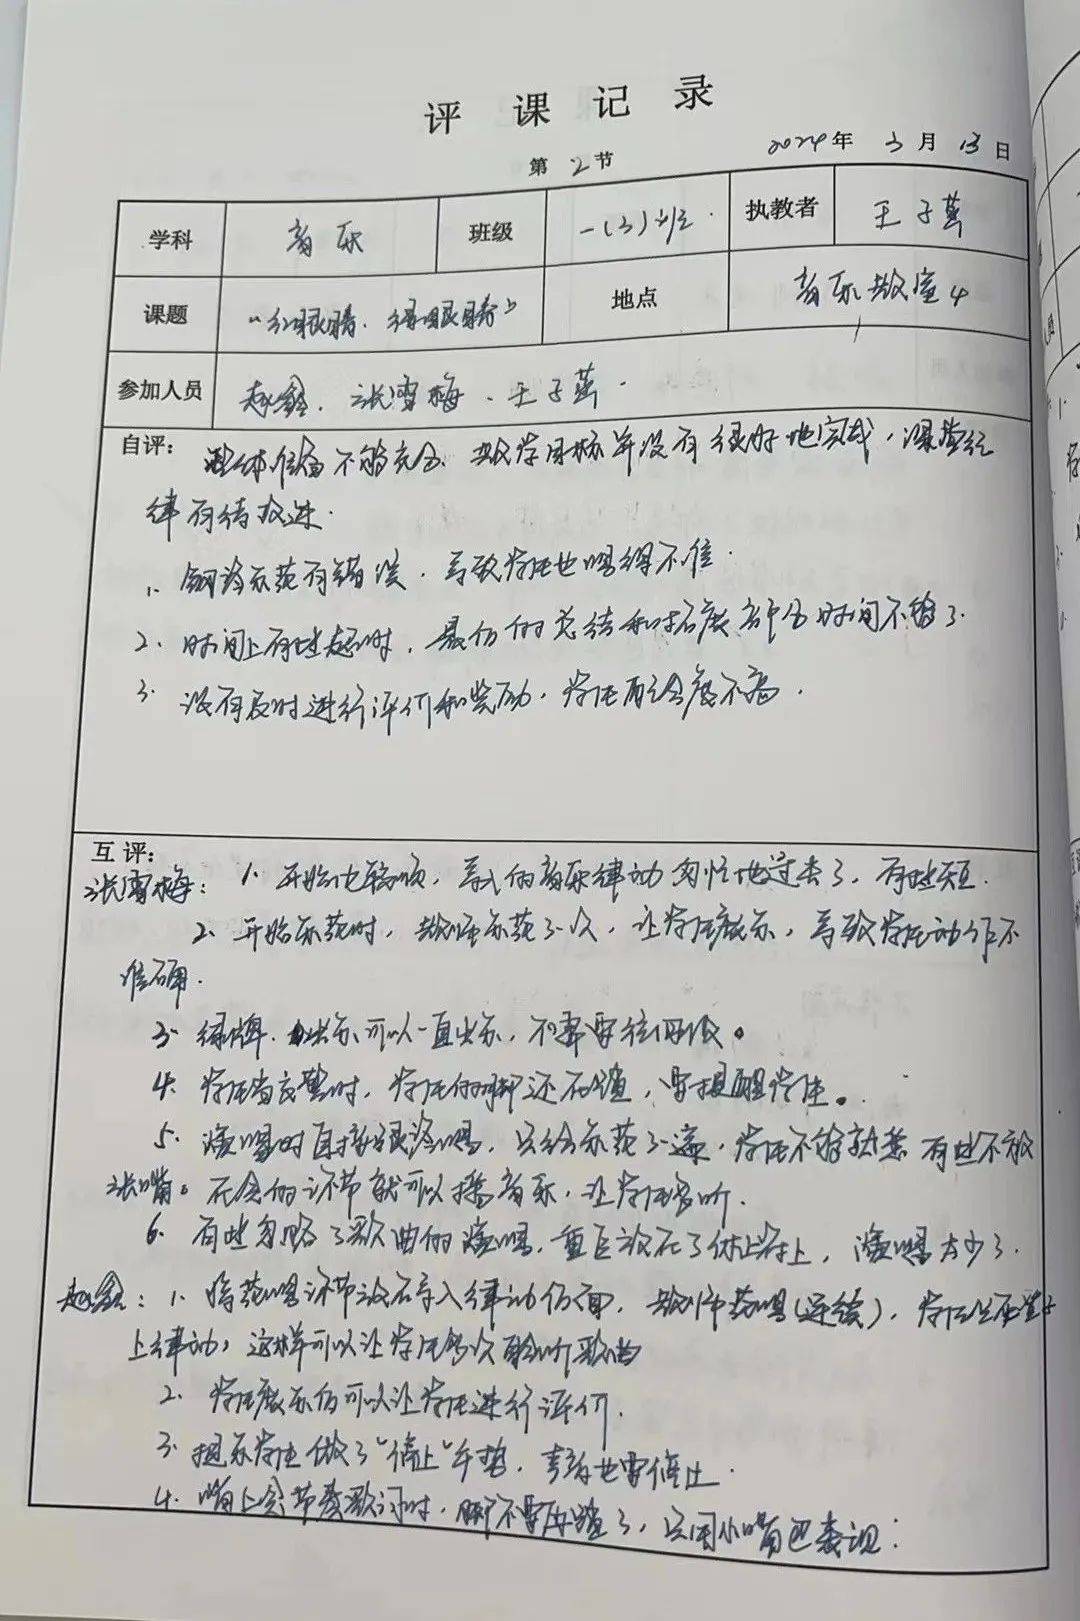 评课记录
2024年3月13日
第2节
学科 音乐 班级 一(3)班 执教者 王子燕
课题 “红眼睛、绿眼睛” 地点 音乐教室4
参加人员 赵鑫、张雪梅、王子燕
自评: 整体准备不够充分、教学目标并没有很好地完成,课堂纪
律有待改进.
1、钢琴示范有错误,导致学生也唱得不准.
2、时间上有些超时,最后的总结和拓展部分时间不够了.
3. 没有及时进行评价和奖励,学生配合度不高.
互评:
张雪梅: 1. 开始比较顺,导入的音乐律动匆忙地过去了,有些短.
2. 开始示范时,教师示范了一次,让学生展示,导致学生动作不
准确.
3 绿牌、出示可以一直出示,不需要往回收。
4. 学生当交警时,学生的脚还在踏,要提醒学生。
5. 演唱时直接跟琴唱,只给示范了一遍,学生不够熟悉 有些不敢
张嘴。在念的环节就可以播音乐,让学生多听.
6. 有些忽略了歌曲的演唱,重点放在了律动上,演唱太少了.
赵鑫: 1、将范唱环节放在导入律动后面,教师范唱(连续),学生坐在
上律动,这样可以让学生多次聆听歌曲
2. 学生展示后可以让学生进行评价.
3. 提示学生做了“停止”手势,声音也要停止.
4. 嘴上念节奏歌词时,脚不要再踏了,只用小嘴巴表现.